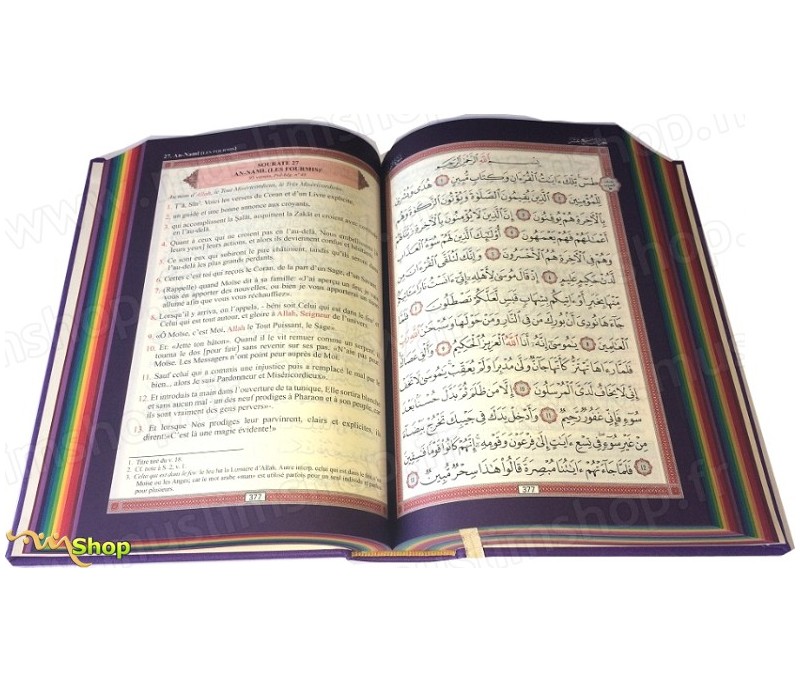 27. An-Naml (LES FOURMIS)
SOURATE 27
AN-NAML (LES FOURMIS)
Au nom d'Allah, le Tout Miséricordieux, le Très Miséricordieux.
1. Tâ, Sîn. Voici les versets du Coran et d'un Livre explicite,
2. un guide et une bonne annonce aux croyants,
3. qui accomplissent la Salât, acquittent la Zakât et croient avec
en l'au-delà.
4. Quant à ceux qui ne croient pas en l'au-delà, Nous embellissons
leurs yeux] leurs actions, et alors ils deviennent confus et
5. Ce sont eux qui subiront le pire châtiment, tandis qu'ils seront
l'au-delà les plus grands perdants.
6. Certes c'est toi qui reçois le Coran, de la part d'un Sage, d'un Savant.
7. (Rappelle) quand Moïse dit à sa famille: «J'ai aperçu un feu; je vais
vous en apporter des nouvelles, ou bien je vous apporterai un
allumé afin que vous vous réchauffiez».
8. Lorsqu'il y arriva, on l'appela, - béni soit Celui qui est dans le feu
et Celui qui est tout autour, et gloire à Allah, Seigneur de l'univers.
9. «Ô Moïse, c'est Moi, Allah le Tout Puissant, le Sage».
10. Et: «Jette ton bâton». Quand il le vit remuer comme un serpent, il
tourna le dos [pour fuir] sans revenir sur ses pas. «N'aie pas peur,
Moïse. Les Messagers n'ont point peur auprès de Moi.
11. Sauf celui qui a commis une injustice puis a remplacé le mal par le
bien... alors Je suis Pardonneur et Miséricordieux».
12. Et introduis ta main dans l'ouverture de ta tunique. Elle sortira blanche
et sans aucun mal - un des neuf prodiges à Pharaon et à son peuple, car
ils sont vraiment des gens pervers».
13. Et lorsque Nos prodiges leur parvinrent, clairs et explicites, ils
dirent: «C'est là une magie évidente!»
1. Titre tiré du v. 18.
2. Cf. note à S. 2, v. 1.
3. Celui qui est dans le feu: le feu fut la Lumière d'Allah. Autre interp. celui qui est dans le feu:
Moïse ou les Anges; car le mot arabe «man» est utilisé parfois pour un seul individu et parfois
pour plusieurs.
377
بِسْمِ اللَّهِ الرَّحْمَٰنِ الرَّحِيمِ
طسٓ تِلْكَ ءَايَٰتُ ٱلْقُرْءَانِ وَكِتَابٍ مُّبِينٍ ١ هُدًى وَبُشْرَىٰ
لِلْمُؤْمِنِينَ ٢ ٱلَّذِينَ يُقِيمُونَ ٱلصَّلَوٰةَ وَيُؤْتُونَ ٱلزَّكَوٰةَ وَهُم
بِٱلْءَاخِرَةِ هُمْ يُوقِنُونَ ٣ إِنَّ ٱلَّذِينَ لَا يُؤْمِنُونَ بِٱلْءَاخِرَةِ زَيَّنَّا لَهُمْ
أَعْمَٰلَهُمْ فَهُمْ يَعْمَهُونَ ٤ أُو۟لَٰٓئِكَ ٱلَّذِينَ لَهُمْ سُوٓءُ ٱلْعَذَابِ
وَهُمْ فِى ٱلْءَاخِرَةِ هُمُ ٱلْأَخْسَرُونَ ٥ وَإِنَّكَ لَتُلَقَّى ٱلْقُرْءَانَ مِن
لَّدُنْ حَكِيمٍ عَلِيمٍ ٦ إِذْ قَالَ مُوسَىٰ لِأَهْلِهِۦٓ إِنِّىٓ ءَانَسْتُ نَارًا سَـَٔاتِيكُم
مِّنْهَا بِخَبَرٍ أَوْ ءَاتِيكُم بِشِهَابٍ قَبَسٍ لَّعَلَّكُمْ تَصْطَلُونَ ٧ فَلَمَّا
جَآءَهَا نُودِىَ أَنۢ بُورِكَ مَن فِى ٱلنَّارِ وَمَنْ حَوْلَهَا وَسُبْحَٰنَ ٱللَّهِ رَبِّ
ٱلْعَٰلَمِينَ ٨ يَٰمُوسَىٰٓ إِنَّهُۥٓ أَنَا ٱللَّهُ ٱلْعَزِيزُ ٱلْحَكِيمُ ٩ وَأَلْقِ عَصَاكَ
فَلَمَّا رَءَاهَا تَهْتَزُّ كَأَنَّهَا جَآنٌّ وَلَّىٰ مُدْبِرًا وَلَمْ يُعَقِّبْ يَٰمُوسَىٰ لَا تَخَفْ
إِنِّى لَا يَخَافُ لَدَىَّ ٱلْمُرْسَلُونَ ١٠ إِلَّا مَن ظَلَمَ ثُمَّ بَدَّلَ حُسْنًۢا بَعْدَ
سُوٓءٍ فَإِنِّى غَفُورٌ رَّحِيمٌ ١١ وَأَدْخِلْ يَدَكَ فِى جَيْبِكَ تَخْرُجْ بَيْضَآءَ
مِنْ غَيْرِ سُوٓءٍ فِى تِسْعِ ءَايَٰتٍ إِلَىٰ فِرْعَوْنَ وَقَوْمِهِۦٓ إِنَّهُمْ كَانُوا۟ قَوْمًا فَٰسِقِينَ
١٢ فَلَمَّا جَآءَتْهُمْ ءَايَٰتُنَا مُبْصِرَةً قَالُوا۟ هَٰذَا سِحْرٌ مُّبِينٌ ١٣
377
Shop